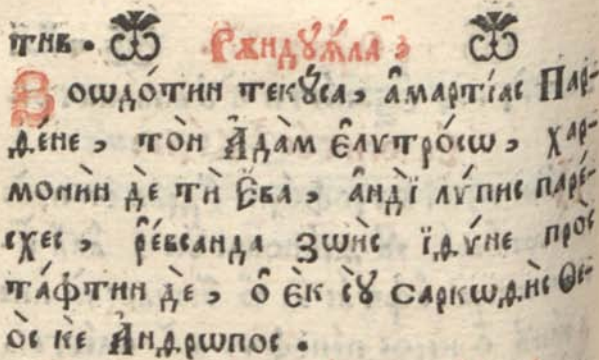 тив. Рѫндꙋѧла ҂
Воѡдо́тин текꙋ́са, а҆марті́ас Пар-
де́не, то̀н А҆да̀м є҆лѵтро́сѡ, хар-
монѝн дѐ тѝ Є҆́ва, а҆нді̀ лѵ́пис паре́-
схес, ре́ѵсанда зѡи̑с і҆дѵ́не про̀с
та́фтин дѐ, ѻ҆ є҆к сꙋ̀ саркѡдѝс Ѳе-
о̀с кѐ А҆́ндрѡпос.